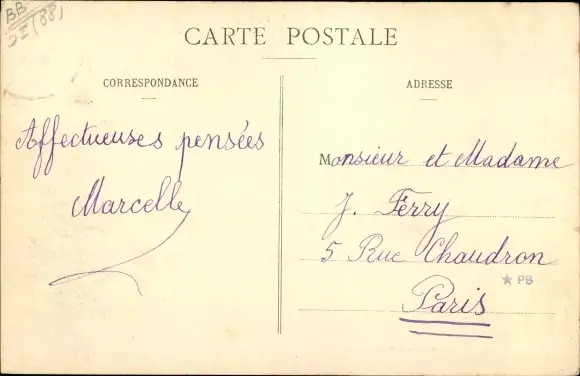 BB
CARTE POSTALE
CORRESPONDANCE
ADRESSE
Affectueuses pensées
Marcelle
Monsieur et Madame
J. Ferry
5 Rue Chaudron
Paris
★ PB